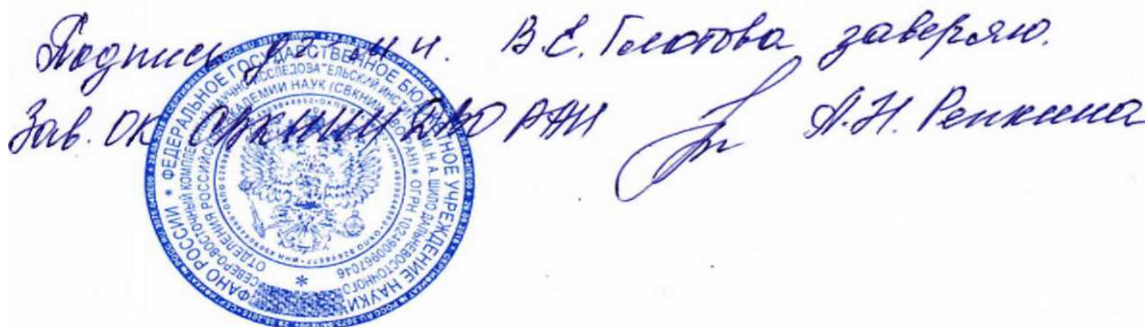 Подпись д.г.-м.н. В.Е. Глотова заверяю.
Зав. ОК СВКНИИ ДВО РАН А.Н. Репкина
ФАНО РОССИИ * ФЕДЕРАЛЬНОЕ ГОСУДАРСТВЕННОЕ БЮДЖЕТНОЕ УЧРЕЖДЕНИЕ НАУКИ
СЕВЕРО-ВОСТОЧНЫЙ КОМПЛЕКСНЫЙ НАУЧНО-ИССЛЕДОВАТЕЛЬСКИЙ ИНСТИТУТ ИМ. Н.А. ШИЛО ДАЛЬНЕВОСТОЧНОГО
ОТДЕЛЕНИЯ РОССИЙСКОЙ АКАДЕМИИ НАУК (СВКНИИ ДВО РАН) * ОГРН 1024900967046